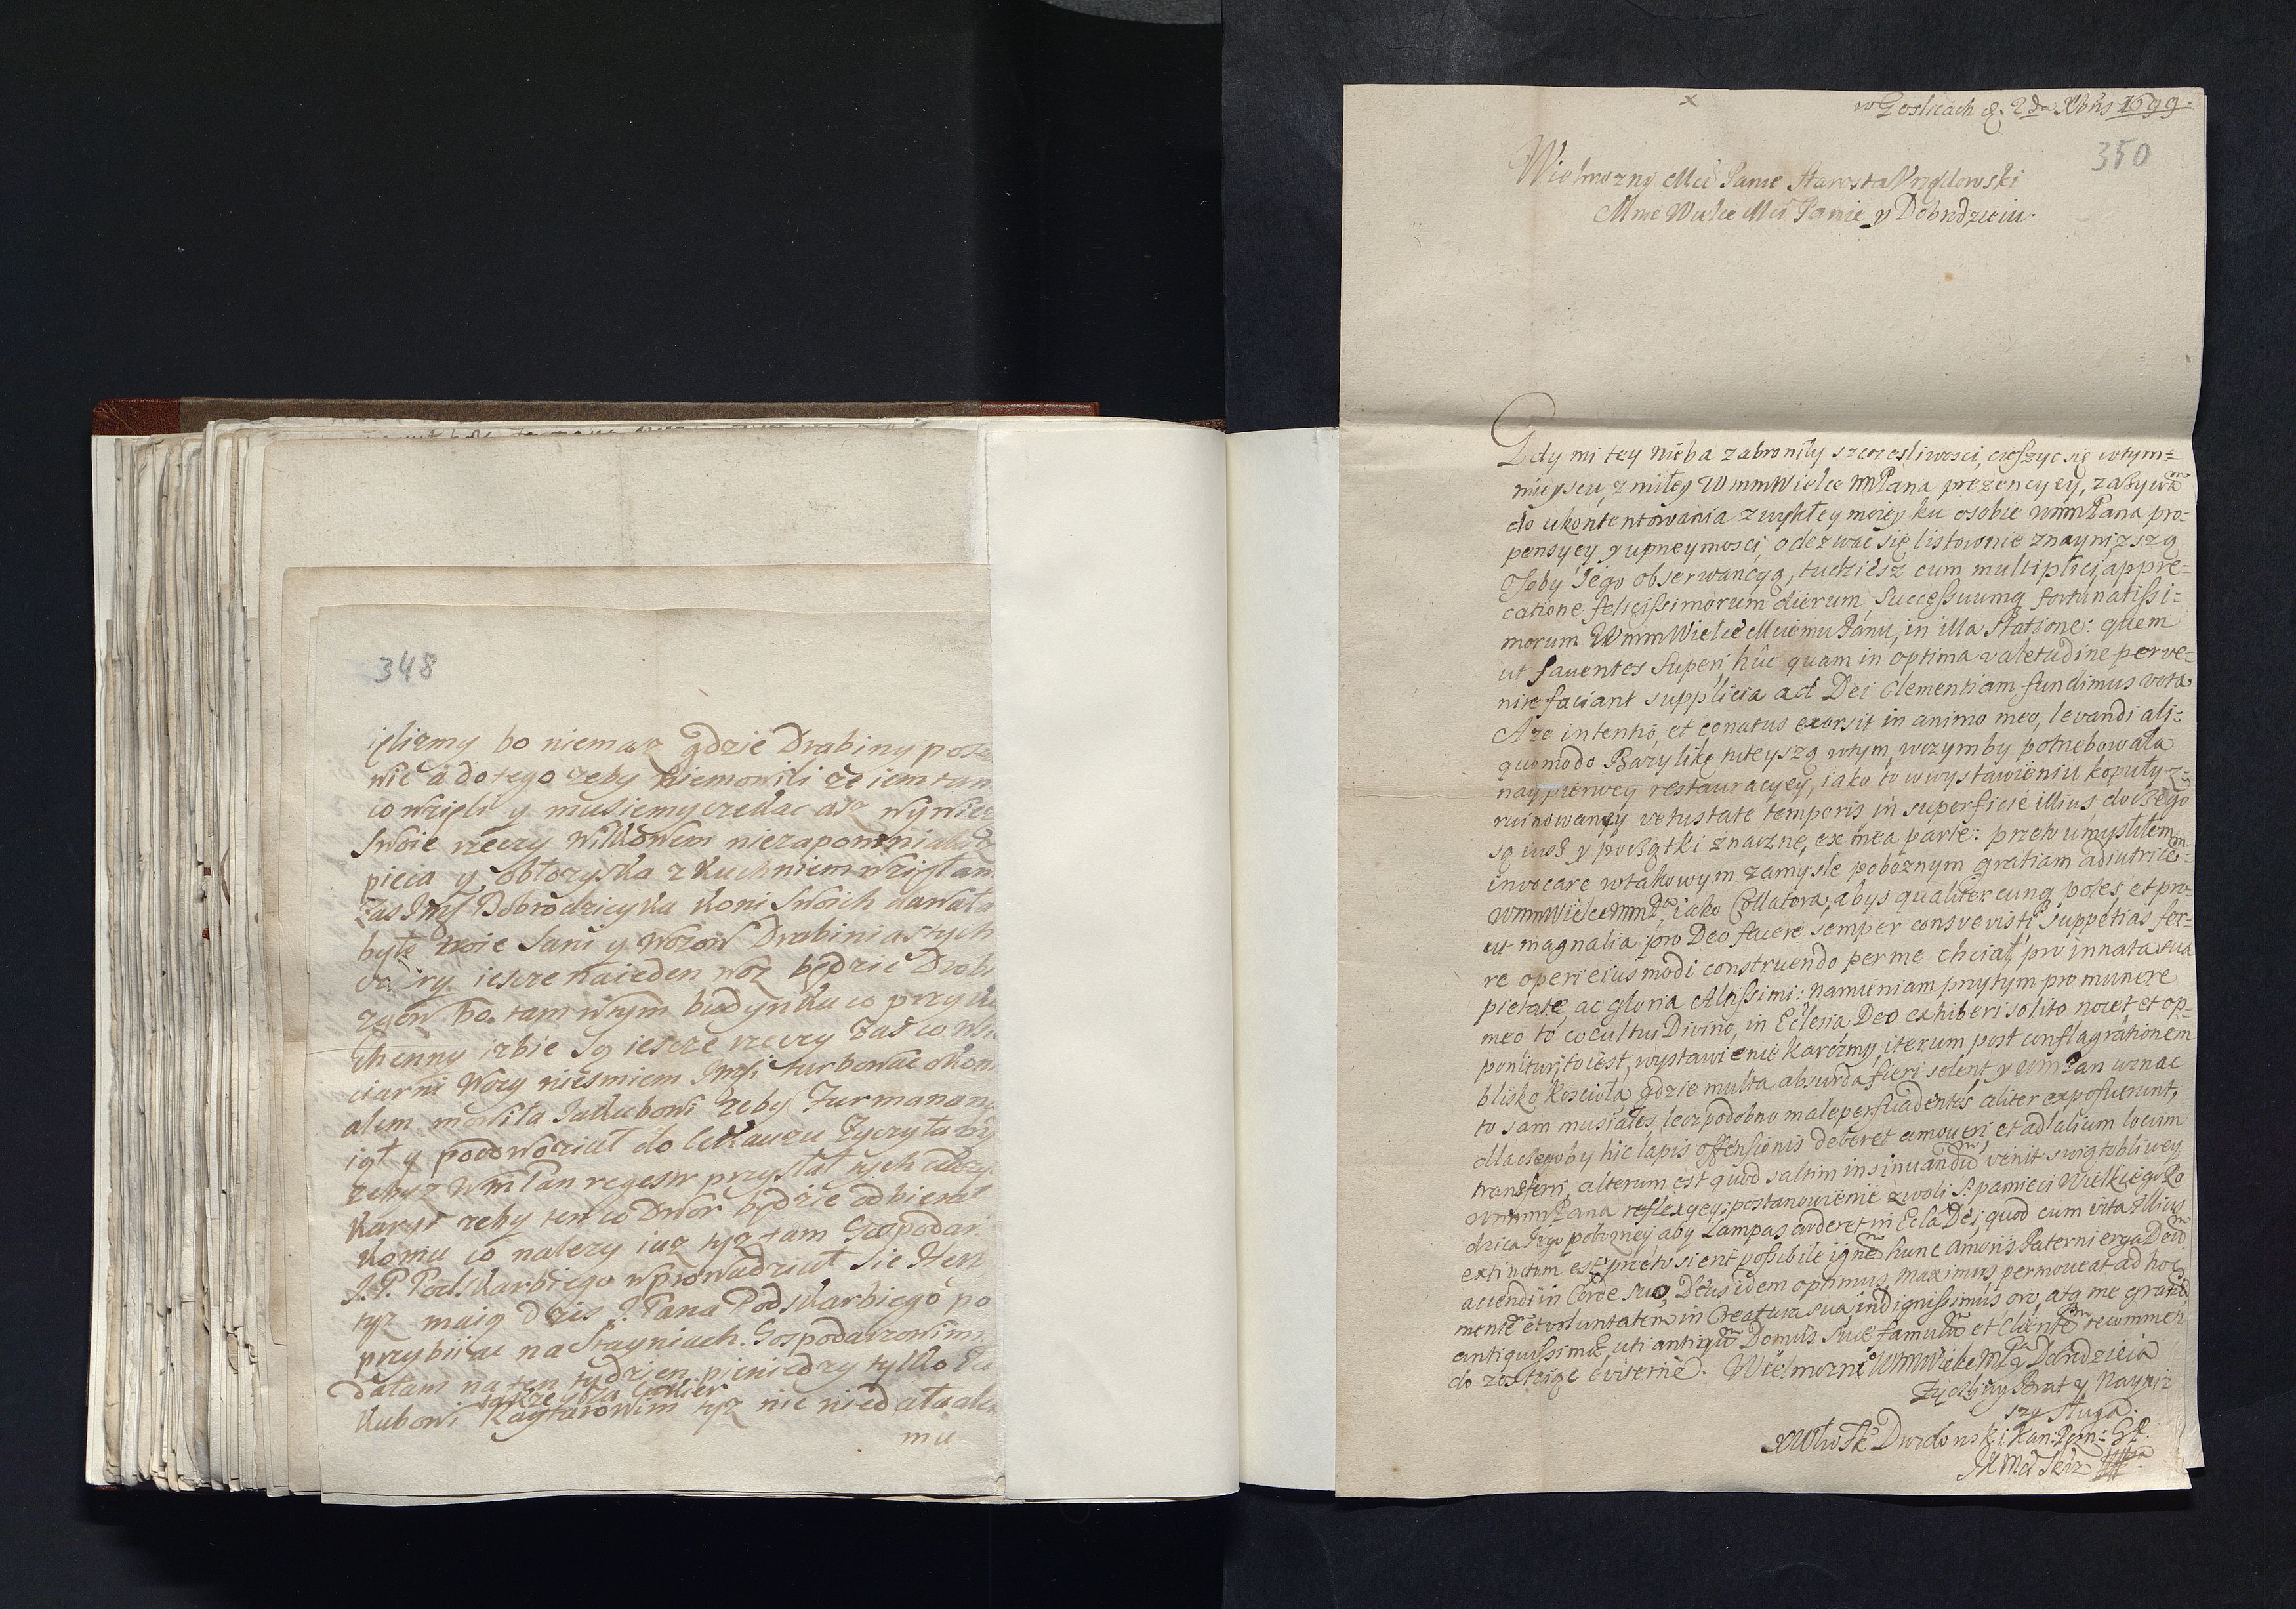 348
ięlizmy bo niemasz gdzie Drabiny posta
wić a do tego zeby niemowili ze iem tam
co wzięli y musiemy czekac asz wywiez
Swoie rzeczy Wilkowem niezapomniała
pieca y obtozyska z kuchniem wzięłam
Zas Imsſ Dobrodzieyka koni Swoich dawała
było troie Sani y wozow Drabiniastych
iescze naieden woz będzie Drob
bo tam wtym budynku co przy ku
chenny izbie Są iescze rzeczy Zas co w
ciarni Wozy niesmiem Imsi turbowac o kon
alem mowiła Jakubowi zeby Furmana na
iął y podowoział do Cekauzu Zyczyła by
zebysz WmPan regestr przysłał tych
karyt zeby ten co Dwor będzie odbierał
komu co nalezy iuz tyz tam Gospodar
J.P. Podskarbiego wprowadzieł Sie Her
tyz maią Dzis J. Pana Podskarbiego po
przybiiac na Stayniach. Gospodarzowim
Dałam na ten tydzien pieniedzy tylko Ja
kubowi Kaytarowim tyz nic niedałaale
mu
x
w Goslicach d. 2da Xbris 1699.
350
Wielmozny Mci Panie Starosta Vrzędowski
Mnie Wielce Mci Panie y Dobrodzieiu.
Gdy mi tey nieba zabroniły szczesliwosci, cieszyc się wtym=
mieyscu, z miłey WmmWielce mPana prezencyey, zazywā
do ukontentowania zwykłey moiey ku osobie wmmPana pro-
pensyey y upreymosci, odezwac się listownie znaynizszą
Osoby Jego obserwancyą, tudziesz cum multiplici appre=
catione felicissimorum dierum, Successuumq fortunatissi=
morum WmmWielce Mciemu Panu, in illa Statione: quem
ut faventes Superi huc quam in optima valetudine perve=
nire faciant supplicia ad Dei Clementiam fundimus vota
Aze intentio et conatus exorsit in animo meo, levandi ali=
quomodo Bazylikę tuteyszą wtym, wczymby potrzebowała
naypierwey restauracyey, iako to w wystawieniu kopuły z=
ruinowaney vetustate temporis in superficie illius, do czego
są iusz y początki znaczne, ex mea parte: przeto umysliłem
invocare wtakowym zamysle poboznym gratiam adiutricē=
WmmWielce mmPa, iako Collatora, abys qualitercunq potes, et pro=
ut magnalia pro Deo facere semper consvevisti suppetias fer=
re operi eiusmodi construendo per me chciał, pro innata sua
pietate ac gloria Altissimi: namieniam przytym pro munere
meo to co cultui Divino, in Ecclesia Deo exhiberi solito nocet, et op=
ponitur, to iest, wystawienie Karczmy, iterum post conflagrationem
blisko koscioła gdzie multa absurda fieri solent, y wmPan uznac
to sam musiałes, lecz podobno male persuadentes aliter exposuerunt,
dlaczegoby hic lapis offensionis deberet amoveri, et ad alium locum
transferri, alterum est quod saltim insinuandū venit swiątobliwey
wmmPana reflexyey, postanowienie z woli S. pamieci Wielkiego Ro
dzica Jego pobozney aby Lampas arderet in Ecla Dei, quod cum vita Illius
extinctum est, przeto si erit possibile ignē hunc Amoris Paterni erga Deū
accendi in Corde suo, Deus idem optimus, maximus, permoveat ad hoc
mentē et voluntatem in Creatura sua indignissimus oro, atq me gratiæ
antiquissimæ, uti antiqū Domus Suæ famulū et Clientē recommen
do zostaiąc eviternē. Wielmozne° WmmWielce mPa y Dobrodzieia
Zyczliwy Brat y Nayniz
szy sługa.